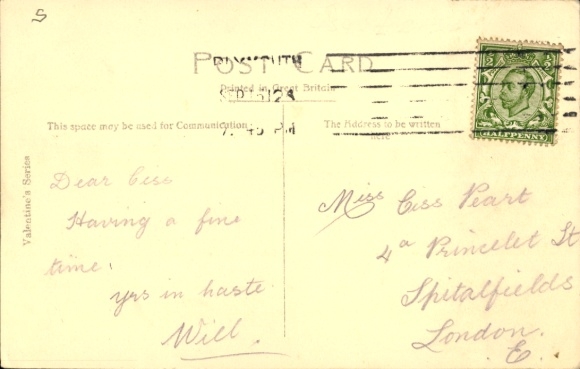 5
POST CARD
PLYMOUTH
Printed in Great Britain
7.45 PM
HALFPENNY
This space may be used for Communication
The Address to be written
here
Valentine's Series
Dear Ciss
Having a fine
time.
yrs in haste
Will.
Miss Ciss Peart
4a Princelet St
Spitalfields
London.
E.